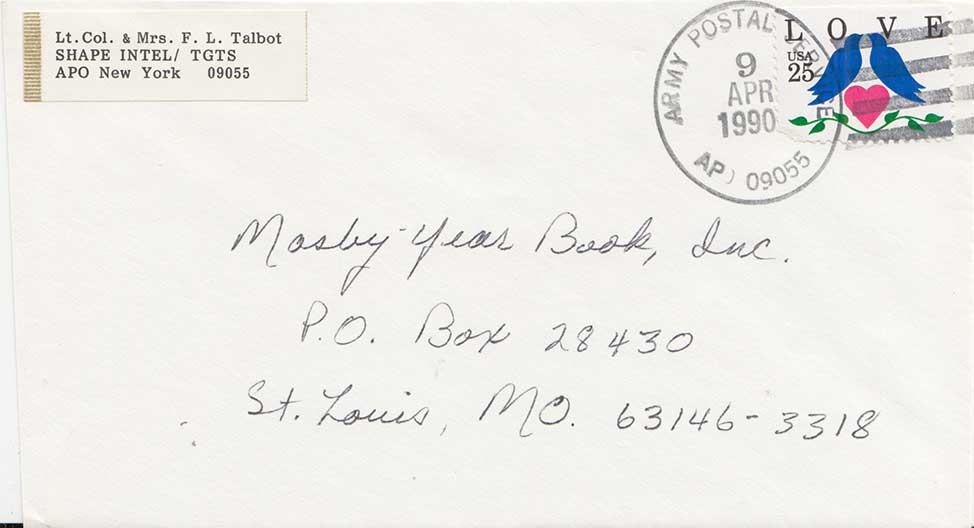 Lt. Col. & Mrs. F. L. Talbot
SHAPE INTEL/ TGTS
APO New York 09055
ARMY POSTAL SERVICE
9
APR
1990
APO 09055
LOVE
USA
25
Mosby-Year Book, Inc.
P.O. Box 28430
St. Louis, MO. 63146-3318